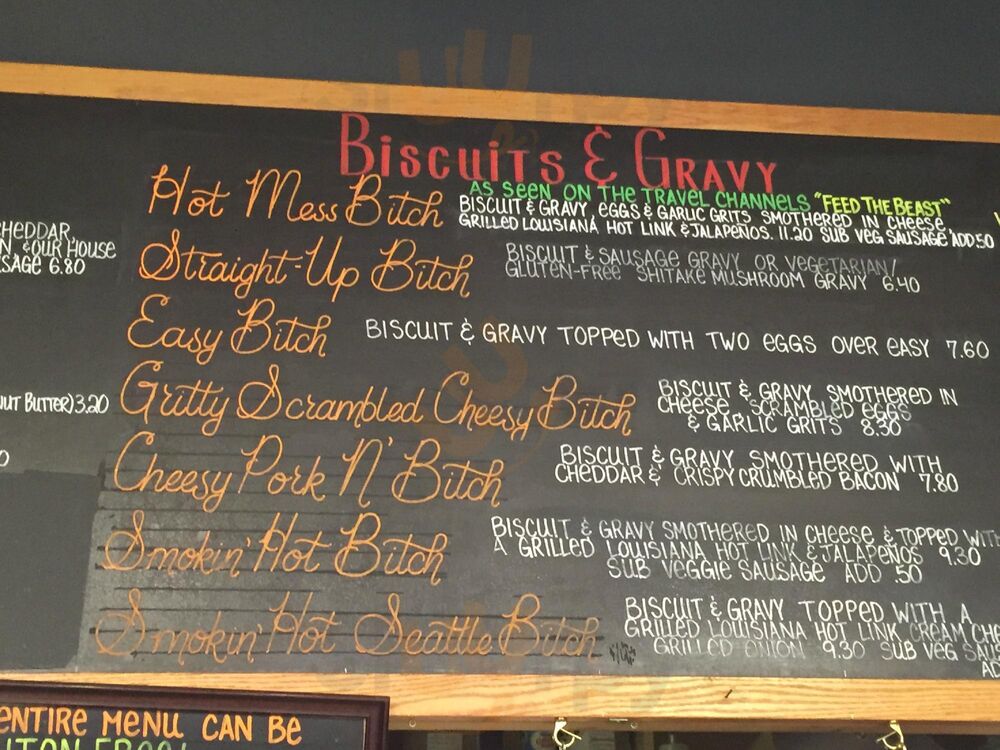 Biscuits & Gravy
Hot Mess Bitch
AS SEEN ON THE TRAVEL CHANNELS "FEED THE BEAST"
BISCUIT & GRAVY, EGGS & GARLIC GRITS SMOTHERED IN CHEESE,
GRILLED LOUISIANA HOT LINK & JALAPENOS. 11.20 SUB VEG SAUSAGE ADD.50
Straight-Up Bitch
BISCUIT & SAUSAGE GRAVY OR VEGETARIAN/
GLUTEN-FREE SHITAKE MUSHROOM GRAVY 6.40
Easy Bitch
BISCUIT & GRAVY TOPPED WITH TWO EGGS OVER EASY 7.60
Gritty Scrambled Cheesy Bitch
BISCUIT & GRAVY SMOTHERED IN
CHEESE, SCRAMBLED EGGS
& GARLIC GRITS 8.30
Cheesy Pork N' Bitch
BISCUIT & GRAVY SMOTHERED WITH
CHEDDAR & CRISPY CRUMBLED BACON 7.80
Smokin' Hot Bitch
BISCUIT & GRAVY SMOTHERED IN CHEESE & TOPPED WITH
A GRILLED LOUISIANA HOT LINK & JALAPEÑOS 9.30
SUB VEGGIE SAUSAGE ADD .50
Smokin' Hot Seattle Bitch
BISCUIT & GRAVY TOPPED WITH A
GRILLED LOUISIANA HOT LINK CREAM CHE
GRILLED ONION 9.30 SUB VEG SAUS
AD
CHEDDAR,
N, & OUR HOUSE
SAGE 6.80
NUT BUTTER) 3.20
0
ENTIRE MENU CAN BE